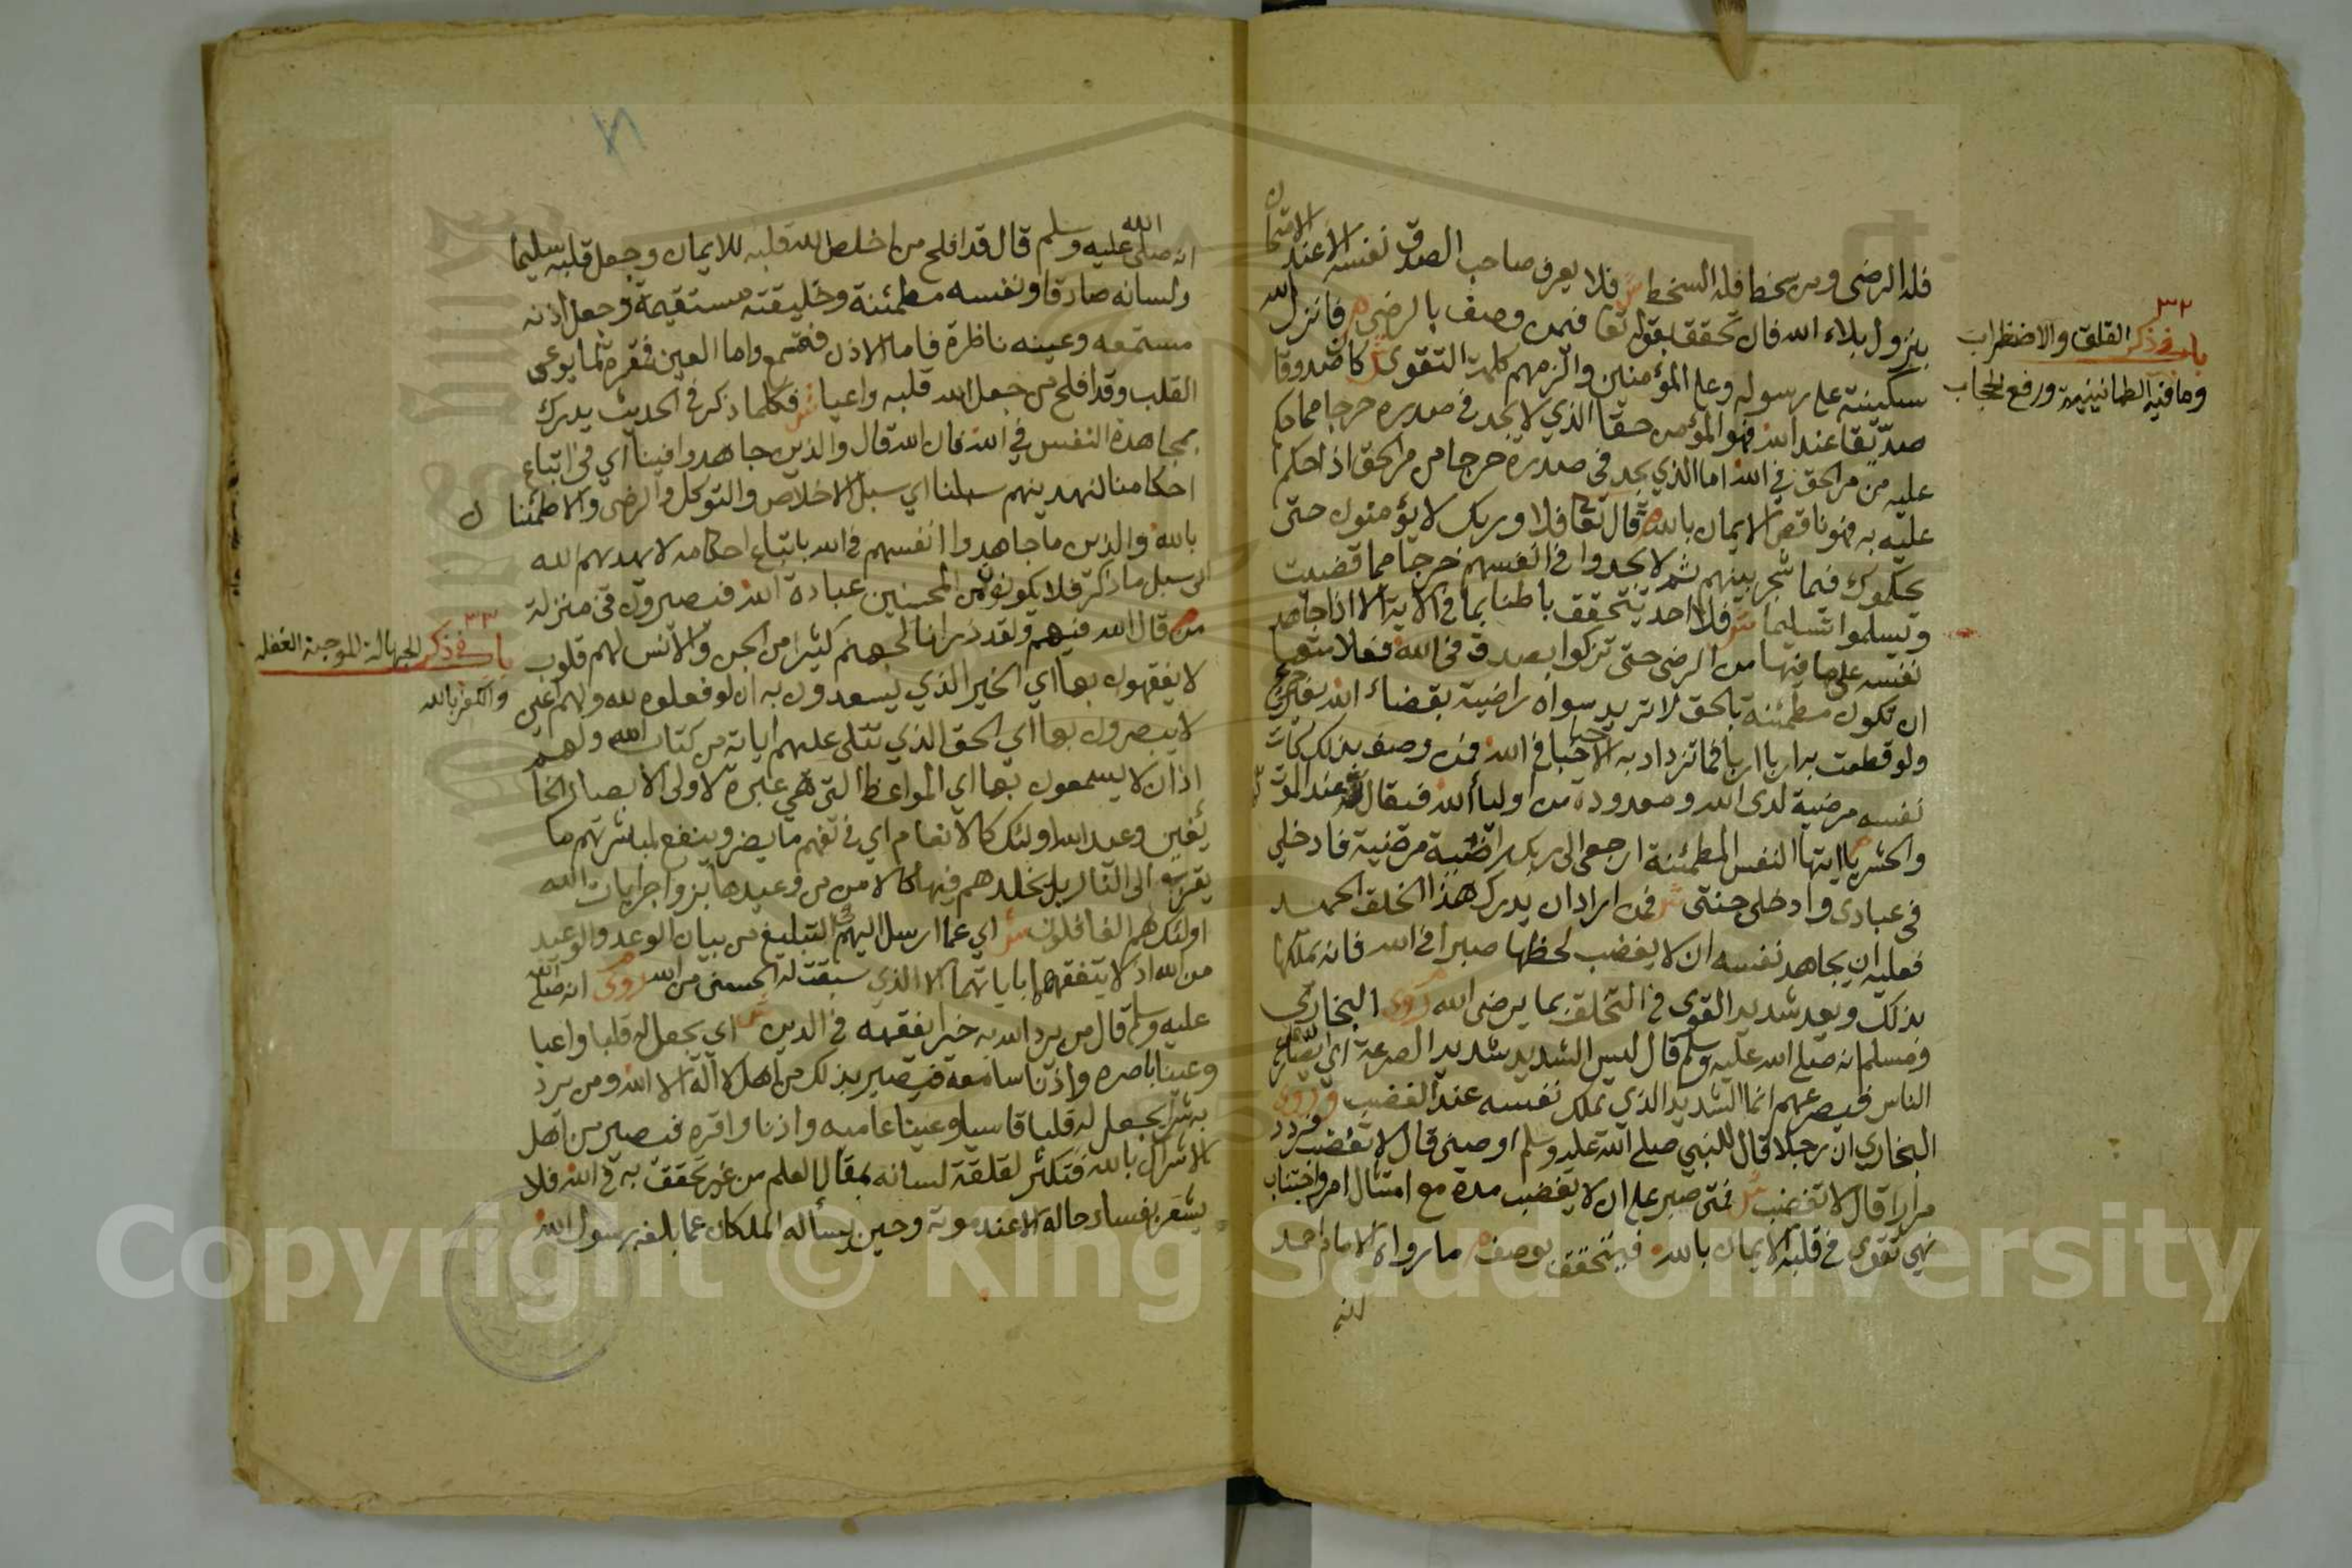 فله الرضى ومن سخط فله السخط ش فلا يعرف صاحب الصدق نفسه الا عند الامتحان
بنزول بلاء الله فان تحقق بقوله تعا فيمن وصف بالرضى ص فانزل الله
سكينته على رسوله وعلى المؤمنين والزمهم كلمة التقوى ش كان صدوقا
صديقا عند الله فهو المؤمن حقا الذي لا يجد في صدره حرجا مما حكم
عليه من مر الحق في الله اما الذي يجد في صدره حرجا من مر الحق اذا حكم
عليه به فهو ناقص الايمان بالله ص قال تعا فلا وربك لا يؤمنون حتى
يحكموك فيما شجر بينهم ثم لا يجدوا في انفسهم حرجا مما قضيت
ويسلموا تسليما ش فلا احد يتحقق باطنا بما في الاية الا اذا جاهد
نفسه على ما فيها من الرضى حتى تزكوا بصدق في الله فعلامتها
ان تكون مطمئنة بالحق لا تريد سواه راضية بقضاء الله
ولو قطعت به اربا اربا فما تزداد به الا حبا في الله فمن وصف بذلك كانت
نفسه مرضية لدى الله ومعدودة من اولياء الله فيقال له عند الموت
والحشر ص يا ايتها النفس المطمئنة ارجعى الى ربك راضية مرضية فادخلي
في عبادى وادخلى جنتى ش فمن اراد ان يدرك هذا الخلق الحميد
فعليه ان يجاهد نفسه ان لا يغضب لحظها صبرا في الله فانه يملكها
بذلك ويعد شديد القوى في التخلق بما يرضى الله روى البخاري
ومسلم انه صلى الله عليه وسلم قال ليس الشديد شديد الصرعة اي يصارع
الناس فيصرعهم انما الشديد الذي يملك نفسه عند الغضب وروى
البخاري ان رجلا قال للنبي صلى الله عليه وسلم اوصنى قال لا تغضب فردد
مرارا قال لا تغضب ش فمتى صبر على ان لا يغضب مدة مع امتثال امر واجتناب
نهي تقوى في قلبه الايمان بالله فيتحقق بوصف ص ما رواه الامام احمد
انه
٣٢
باب في ذكر القلق والاضطراب
وما فيه الطمانينة ورفع الحجاب
انه صلى الله عليه وسلم قال قد افلح من اخلص الله قلبه للايمان وجعل قلبه سليما
ولسانه صادقا ونفسه مطمئنة وخليقته مستقيمة وجعل اذنه
مستمعه وعينه ناظرة فاما الاذن فقمع واما العين فمقرة بما يوعى
القلب وقد افلح من جعل الله قلبه واعيا ش فكلما ذكر في الحديث يدرك
بمجاهدة النفس في الله فان الله قال والذين جاهدوا فينا اي في اتباع
احكامنا لنهدينهم سبلنا اي سبل الاخلاص والتوكل والرضى والاطمئنان
بالله والذين ما جاهدوا انفسهم في الله باتباع احكامه لا يهديهم الله
الى سبل ما ذكر فلا يكونون من المحسنين عبادة الله فيصيرون في منزلة
من ص قال الله فيهم ولقد ذرانا لجهنم كثيرا من الجن والانس لهم قلوب
لا يفقهون بها اي الخير الذي يسعدون به ان لو فعلوه لله ولهم اعين
لا يبصرون بها اي الحق الذي تتلى عليهم اياته من كتاب الله ولهم
اذان لا يسمعون بها اي المواعظ التي هي عبرة لاولى الابصار الخا
ئفين وعيد الله اولئك كالانعام اي في تفهم ما يضر وينفع لمباشرتهم ما
يقربهم الى النار بل يخلدهم فيها كالامن من وعيدها بزواجر ايات الله
اولئك هم الغافلون ش اي عما ارسل اليهم في التبليغ من بيان الوعد والوعيد
من الله اذ لا يتفقهها باياتهما الا الذي سبقت له الحسنى من الله روى انه صلى الله
عليه وسلم قال من يرد الله به خيرا يفقهه في الدين ش اي يجعل له قلبا واعيا
وعينا باصره واذنا سامعه فيصير بذلك من اهل لا اله الا الله ومن يرد
به شرا يجعل له قلبا قاسيا وعينا عاميه واذنا واقره فيصير من اهل
الاشراك بالله فتكثر لقلقة لسانه بمقال العلم من غير تحقق به في الله فلا
يشعر بفساد حاله الا عند موته وحين يسأله الملكان عما بلغه رسول الله
٣٣
باب في ذكر الجهالة الموجبة الغفله
والكفر بالله
Copyright © King Saud University